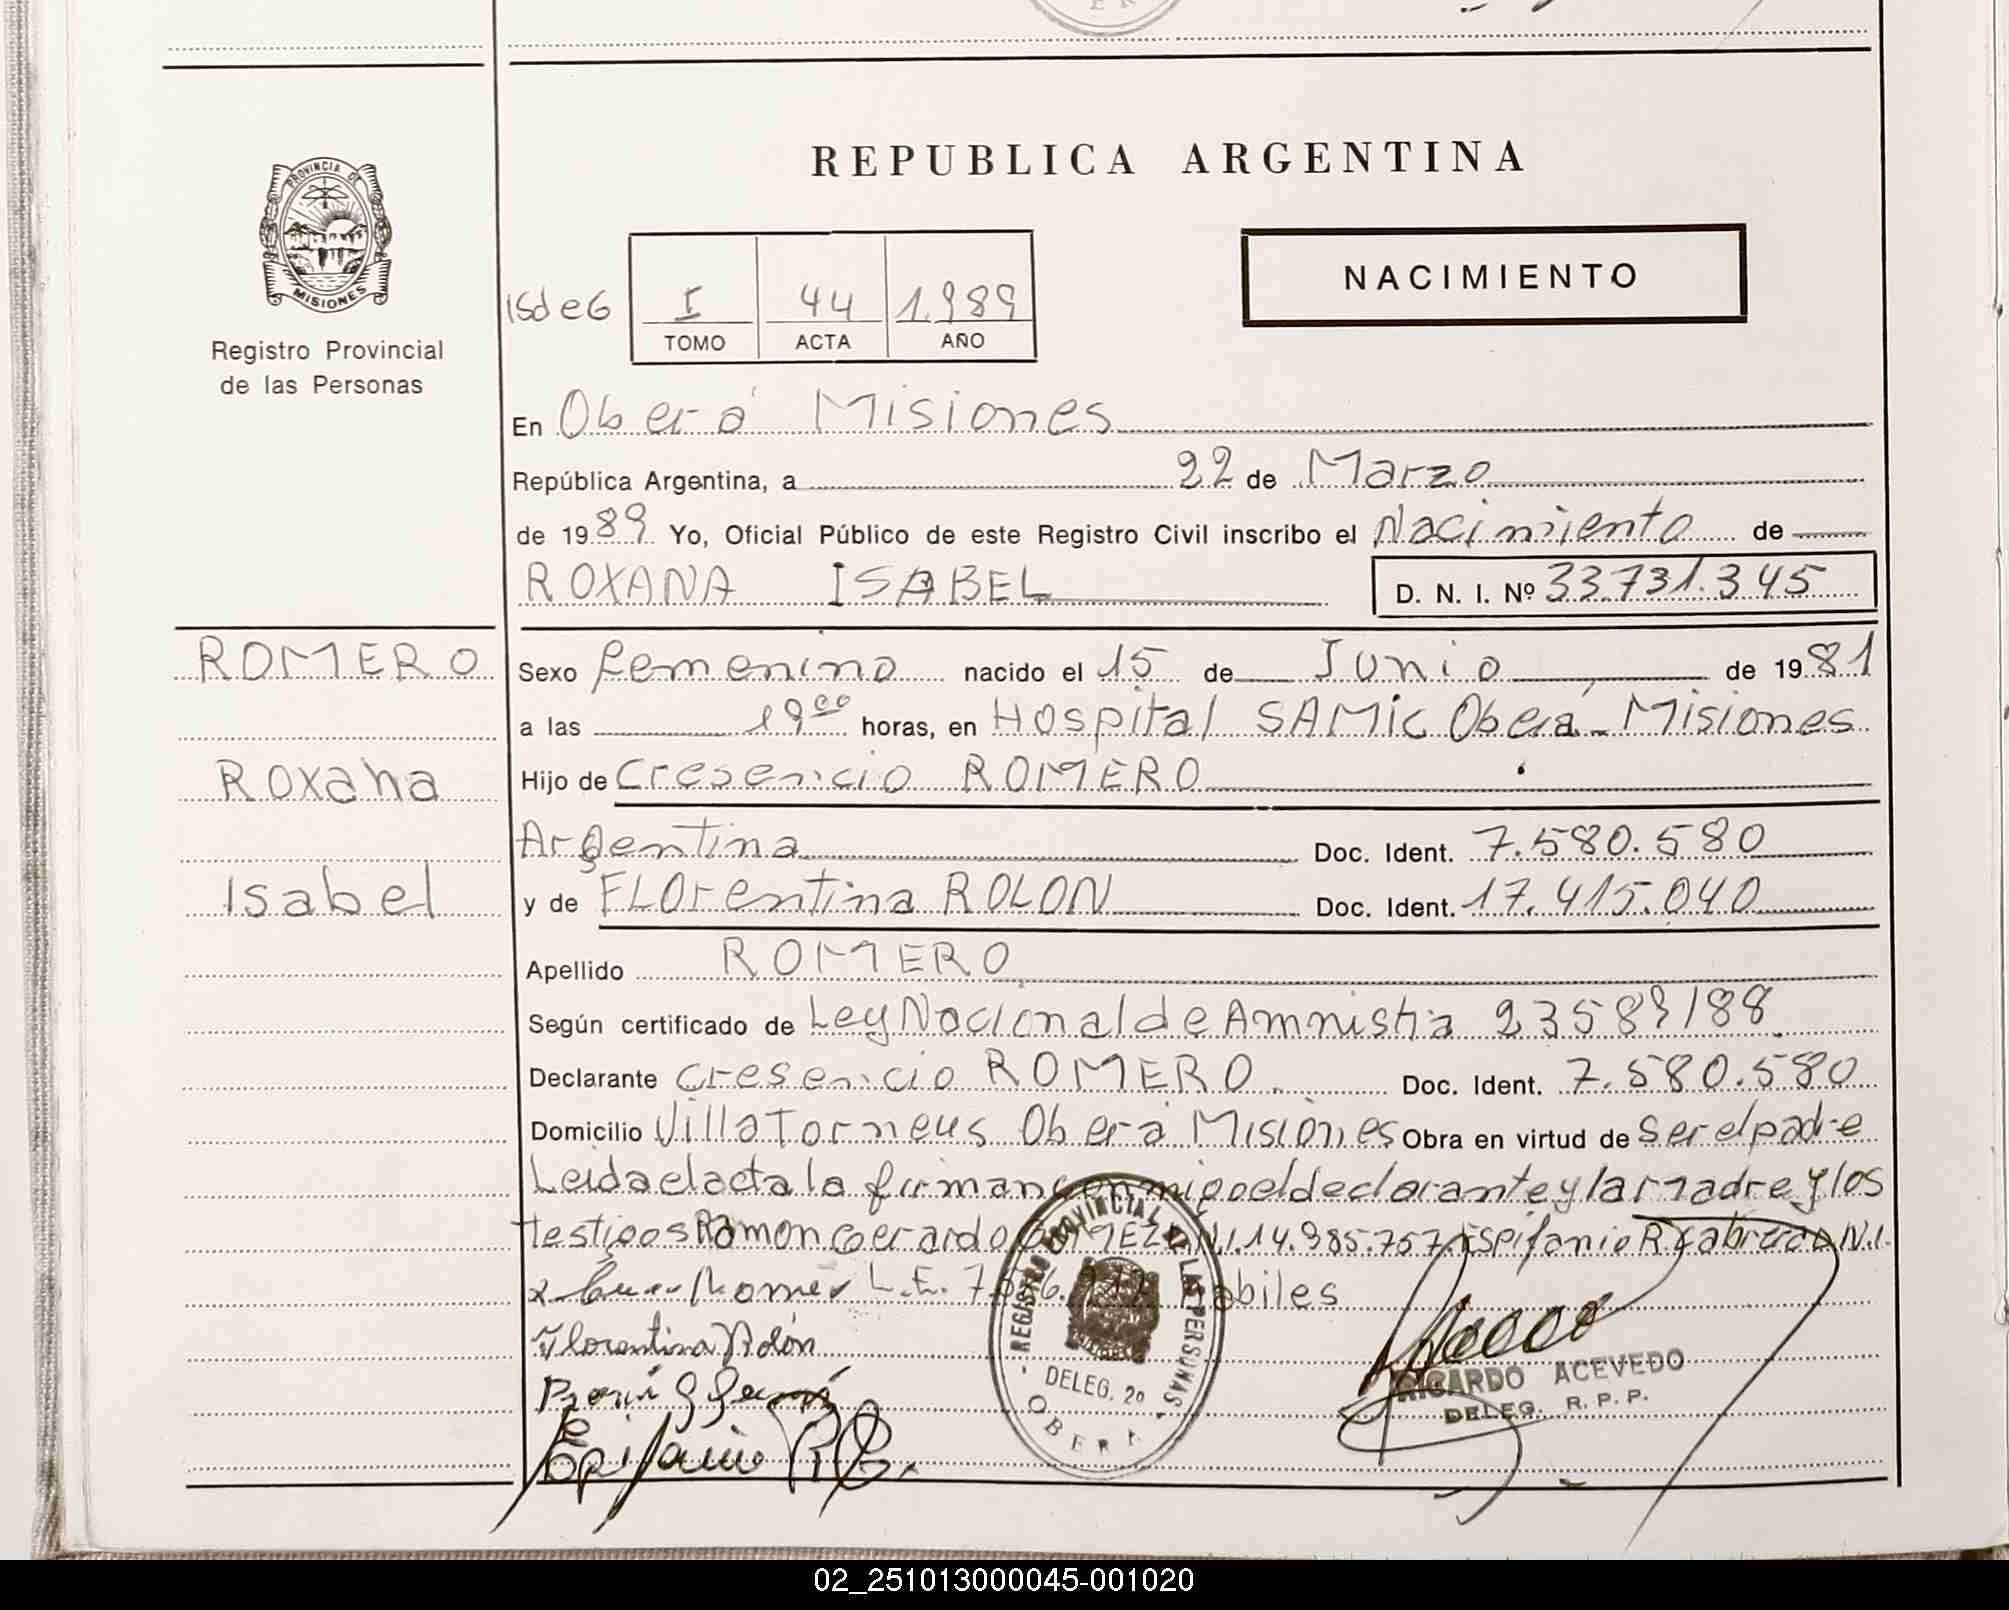 REPUBLICA ARGENTINA
PROVINCIA DE
MISIONES
Registro Provincial
de las Personas
NACIMIENTO
Isde6 I 44 1.989
TOMO ACTA AÑO
En Oberá Misiones
República Argentina, a 22 de Marzo
de 1989 Yo, Oficial Público de este Registro Civil inscribo el Nacimiento de
ROXANA ISABEL D. N. I. Nº 33.731.345
ROMERO
Roxana
Isabel
Sexo femenino nacido el 15 de Junio de 1981
a las 19 00 horas, en Hospital SAMic Oberá - Misiones
Hijo de Cresencio ROMERO
Argentina Doc. Ident. 7.580.580
y de FLOrentina ROLON Doc. Ident. 17.415.040
Apellido ROMERO
Según certificado de Ley Nacional de Amnistia 23589/88
Declarante Cresencio ROMERO. Doc. Ident. 7.580.580
Domicilio Villa Torneus Oberá Misiones Obra en virtud de ser el padre
Leida el acta la firman conmigo el declarante y la madre y los
testigos Ramon Gerardo GOMEZ D.N.I. 14.985.757 Espifanio R Cabrera D.N.I.
L.E. abiles
Florentina Rolón
REGISTRO PROVINCIAL DE LAS PERSONAS
DELEG. 2º
OBERA
RICARDO ACEVEDO
DELEG. R. P. P.
02_251013000045-001020